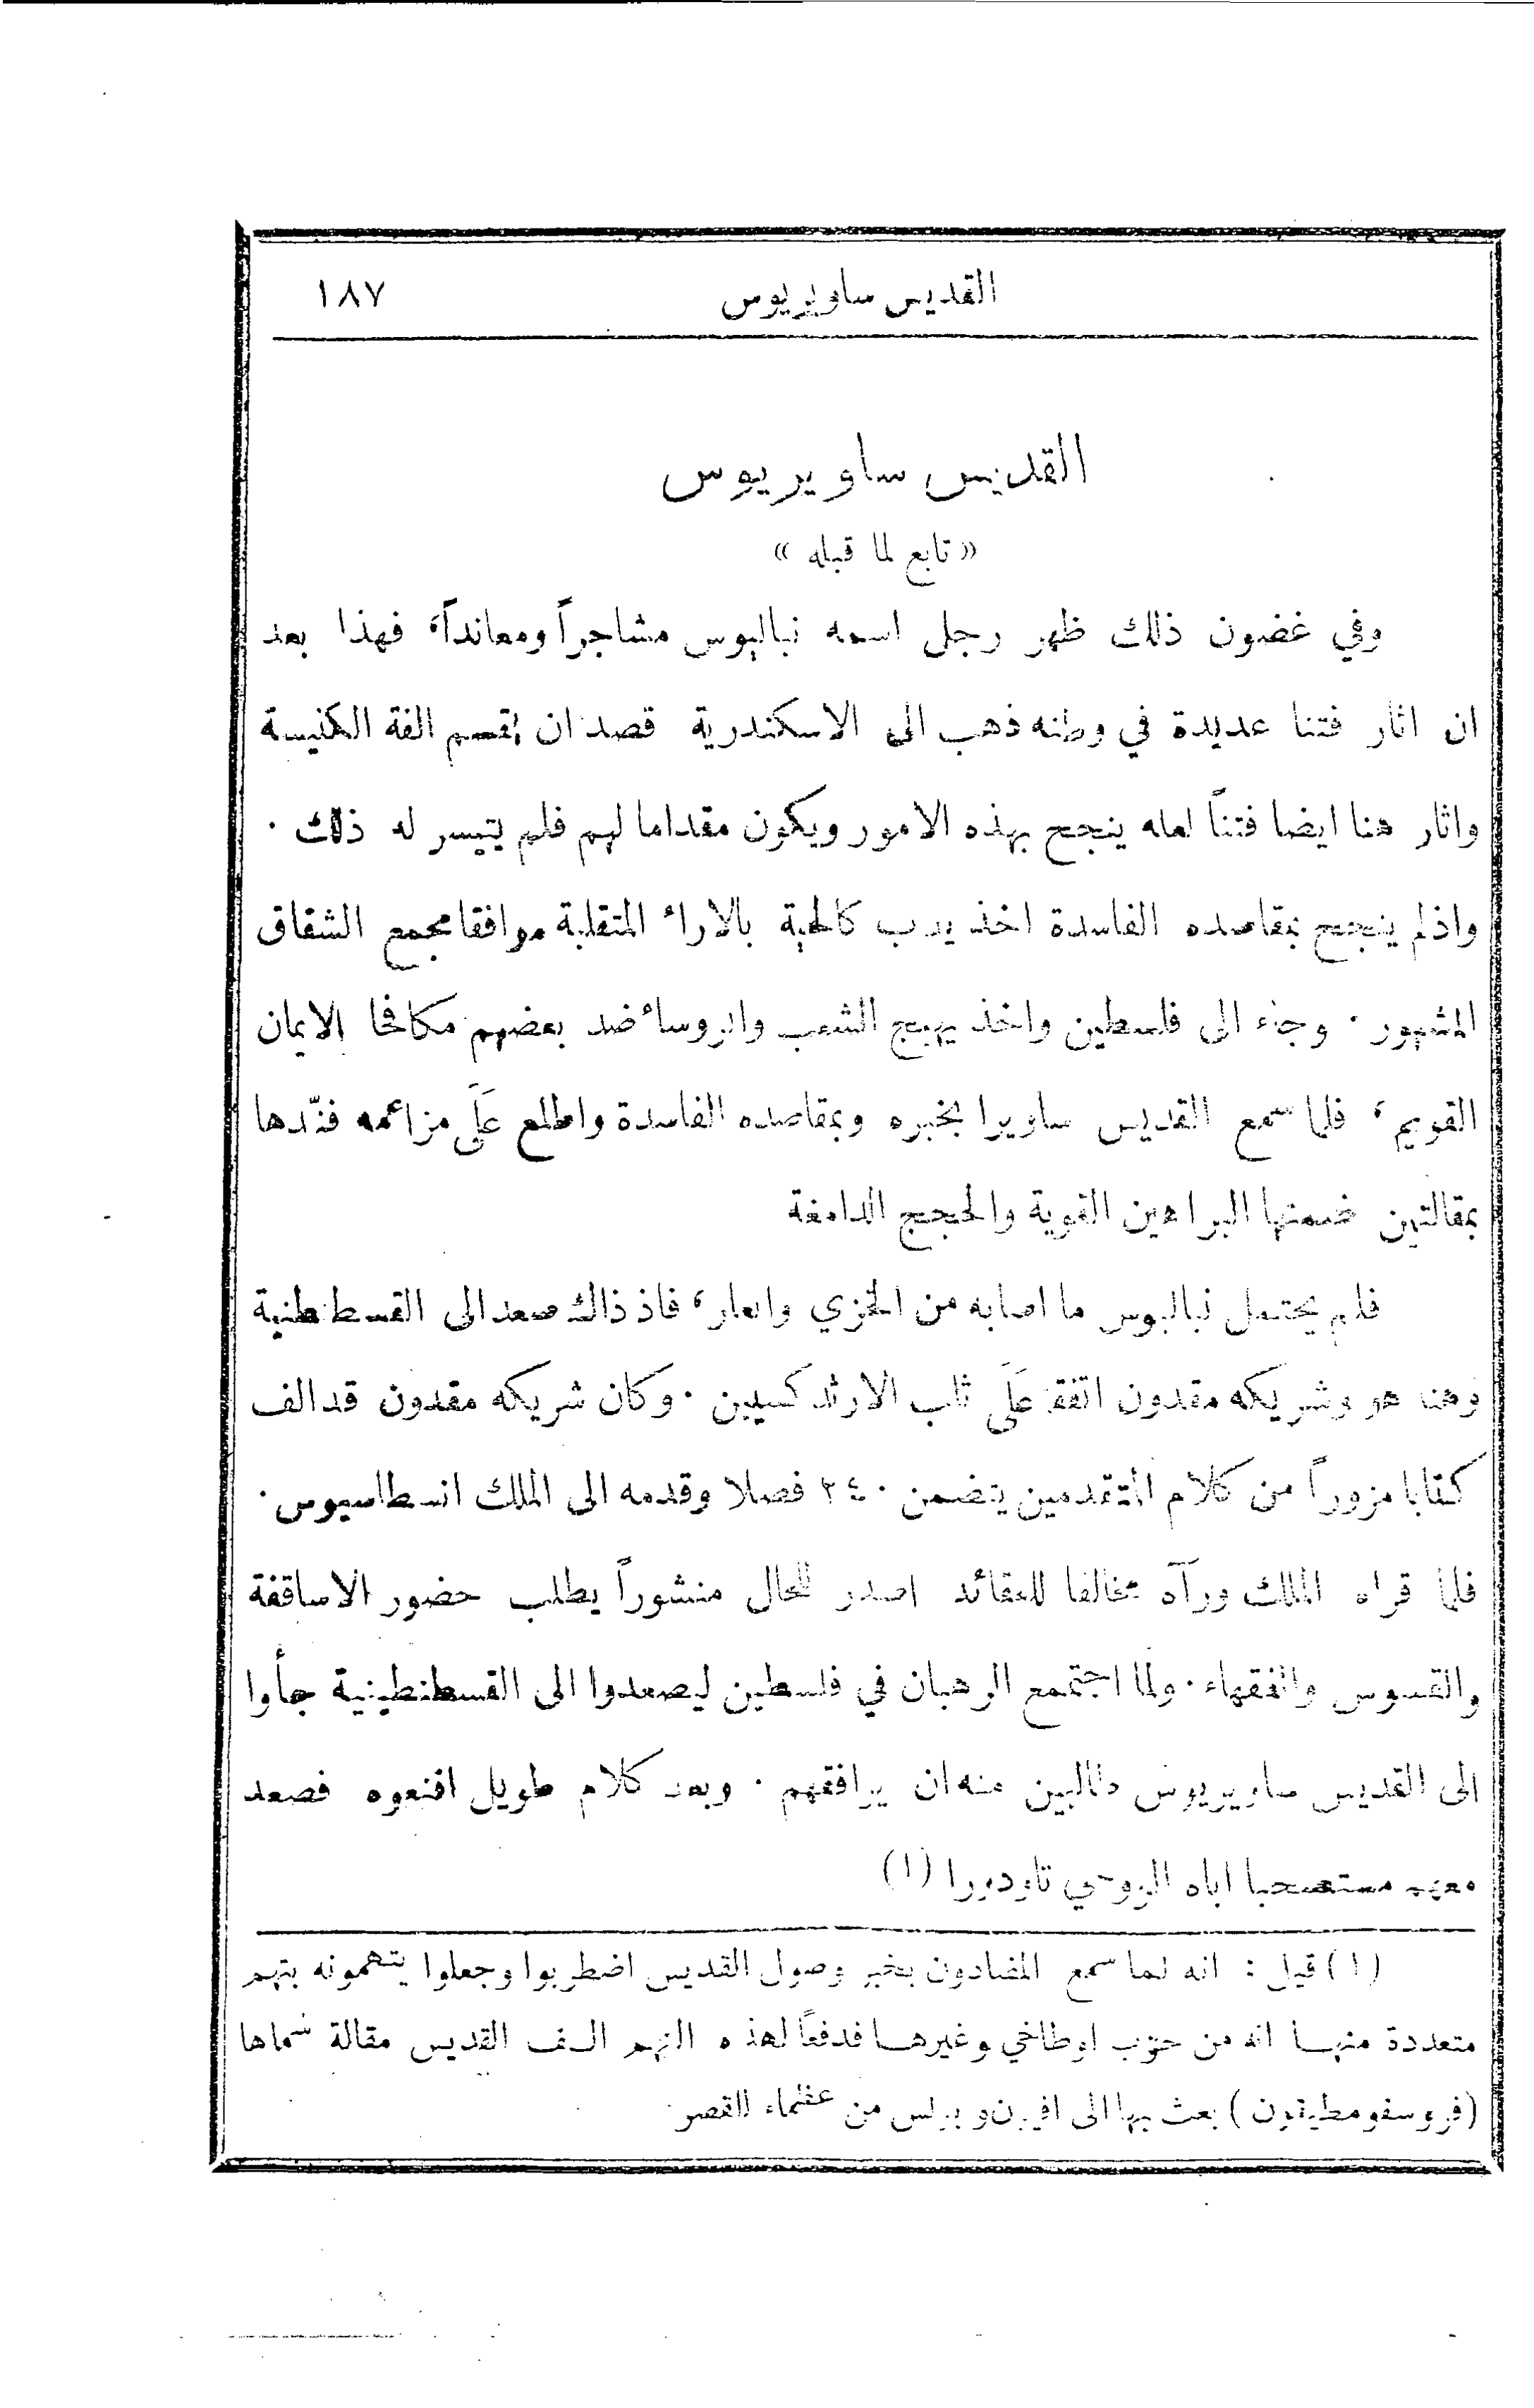 القديس ساويريوس ١٨٧
القديس ساويريوس
« تابع لما قبله »
وفي غضون ذلك ظهر رجل اسمه نباليوس مشاجراً ومعانداً، فهذا بعد
ان اثار فتنا عديدة في وطنه ذهب الى الاسكندرية قصد ان يقسم الفة الكنيسة
واثار هنا ايضا فتناً لعله ينجح بهذه الامور ويكون مقداما لهم فلم يتيسر له ذلك ٠
واذ لم ينجح بمقاصده الفاسدة اخذ يدب كالحية بالاراء المتقلبة موافقا مجمع الشقاق
المشهور ٠ وجاء الى فلسطين واخذ يهيج الشعب والروساء ضد بعضهم مكافحا الايمان
القويم، فلما سمع القديس ساويرا بخبره وبمقاصده الفاسدة واطلع عَلَى مزاعمه فنّدها
بمقالتين ضمنها البراهين القوية والحجج الدامغة
فلم يحتمل نباليوس ما اصابه من الخزي والعار، فاذ ذاك صعد الى القسطنطنية
وهنا هو وشريكه مقدون اتفقا عَلَى ثلب الارثدكسيين ٠ وكان شريكه مقدون قد الف
كتابا مزوراً من كلام المتقدمين يتضمن ٢٤٠ فصلا وقدمه الى الملك انسطاسيوس ٠
فلما قراه الملك ورآه مخالفا للعقائد اصدر للحال منشوراً يطلب حضور الاساقفة
والقسوس والفقهاء ٠ ولما اجتمع الرهبان في فلسطين ليصعدوا الى القسطنطينية جأوا
الى القديس ساويريوس طالبين منه ان يرافقهم ٠ وبعد كلام طويل اقنعوه فصعد
معهم مستصحبا اباه الروحي تاودورا (١)
(١) قيل : انه لما سمع المضادون بخبر وصول القديس اضطربوا وجعلوا يتهمونه بتهم
متعددة منها انه من حزب اوطاخي وغيرها فدفعاً لهذه التهم الف القديس مقالة سماها
بعث بها الى من عظماء القصر